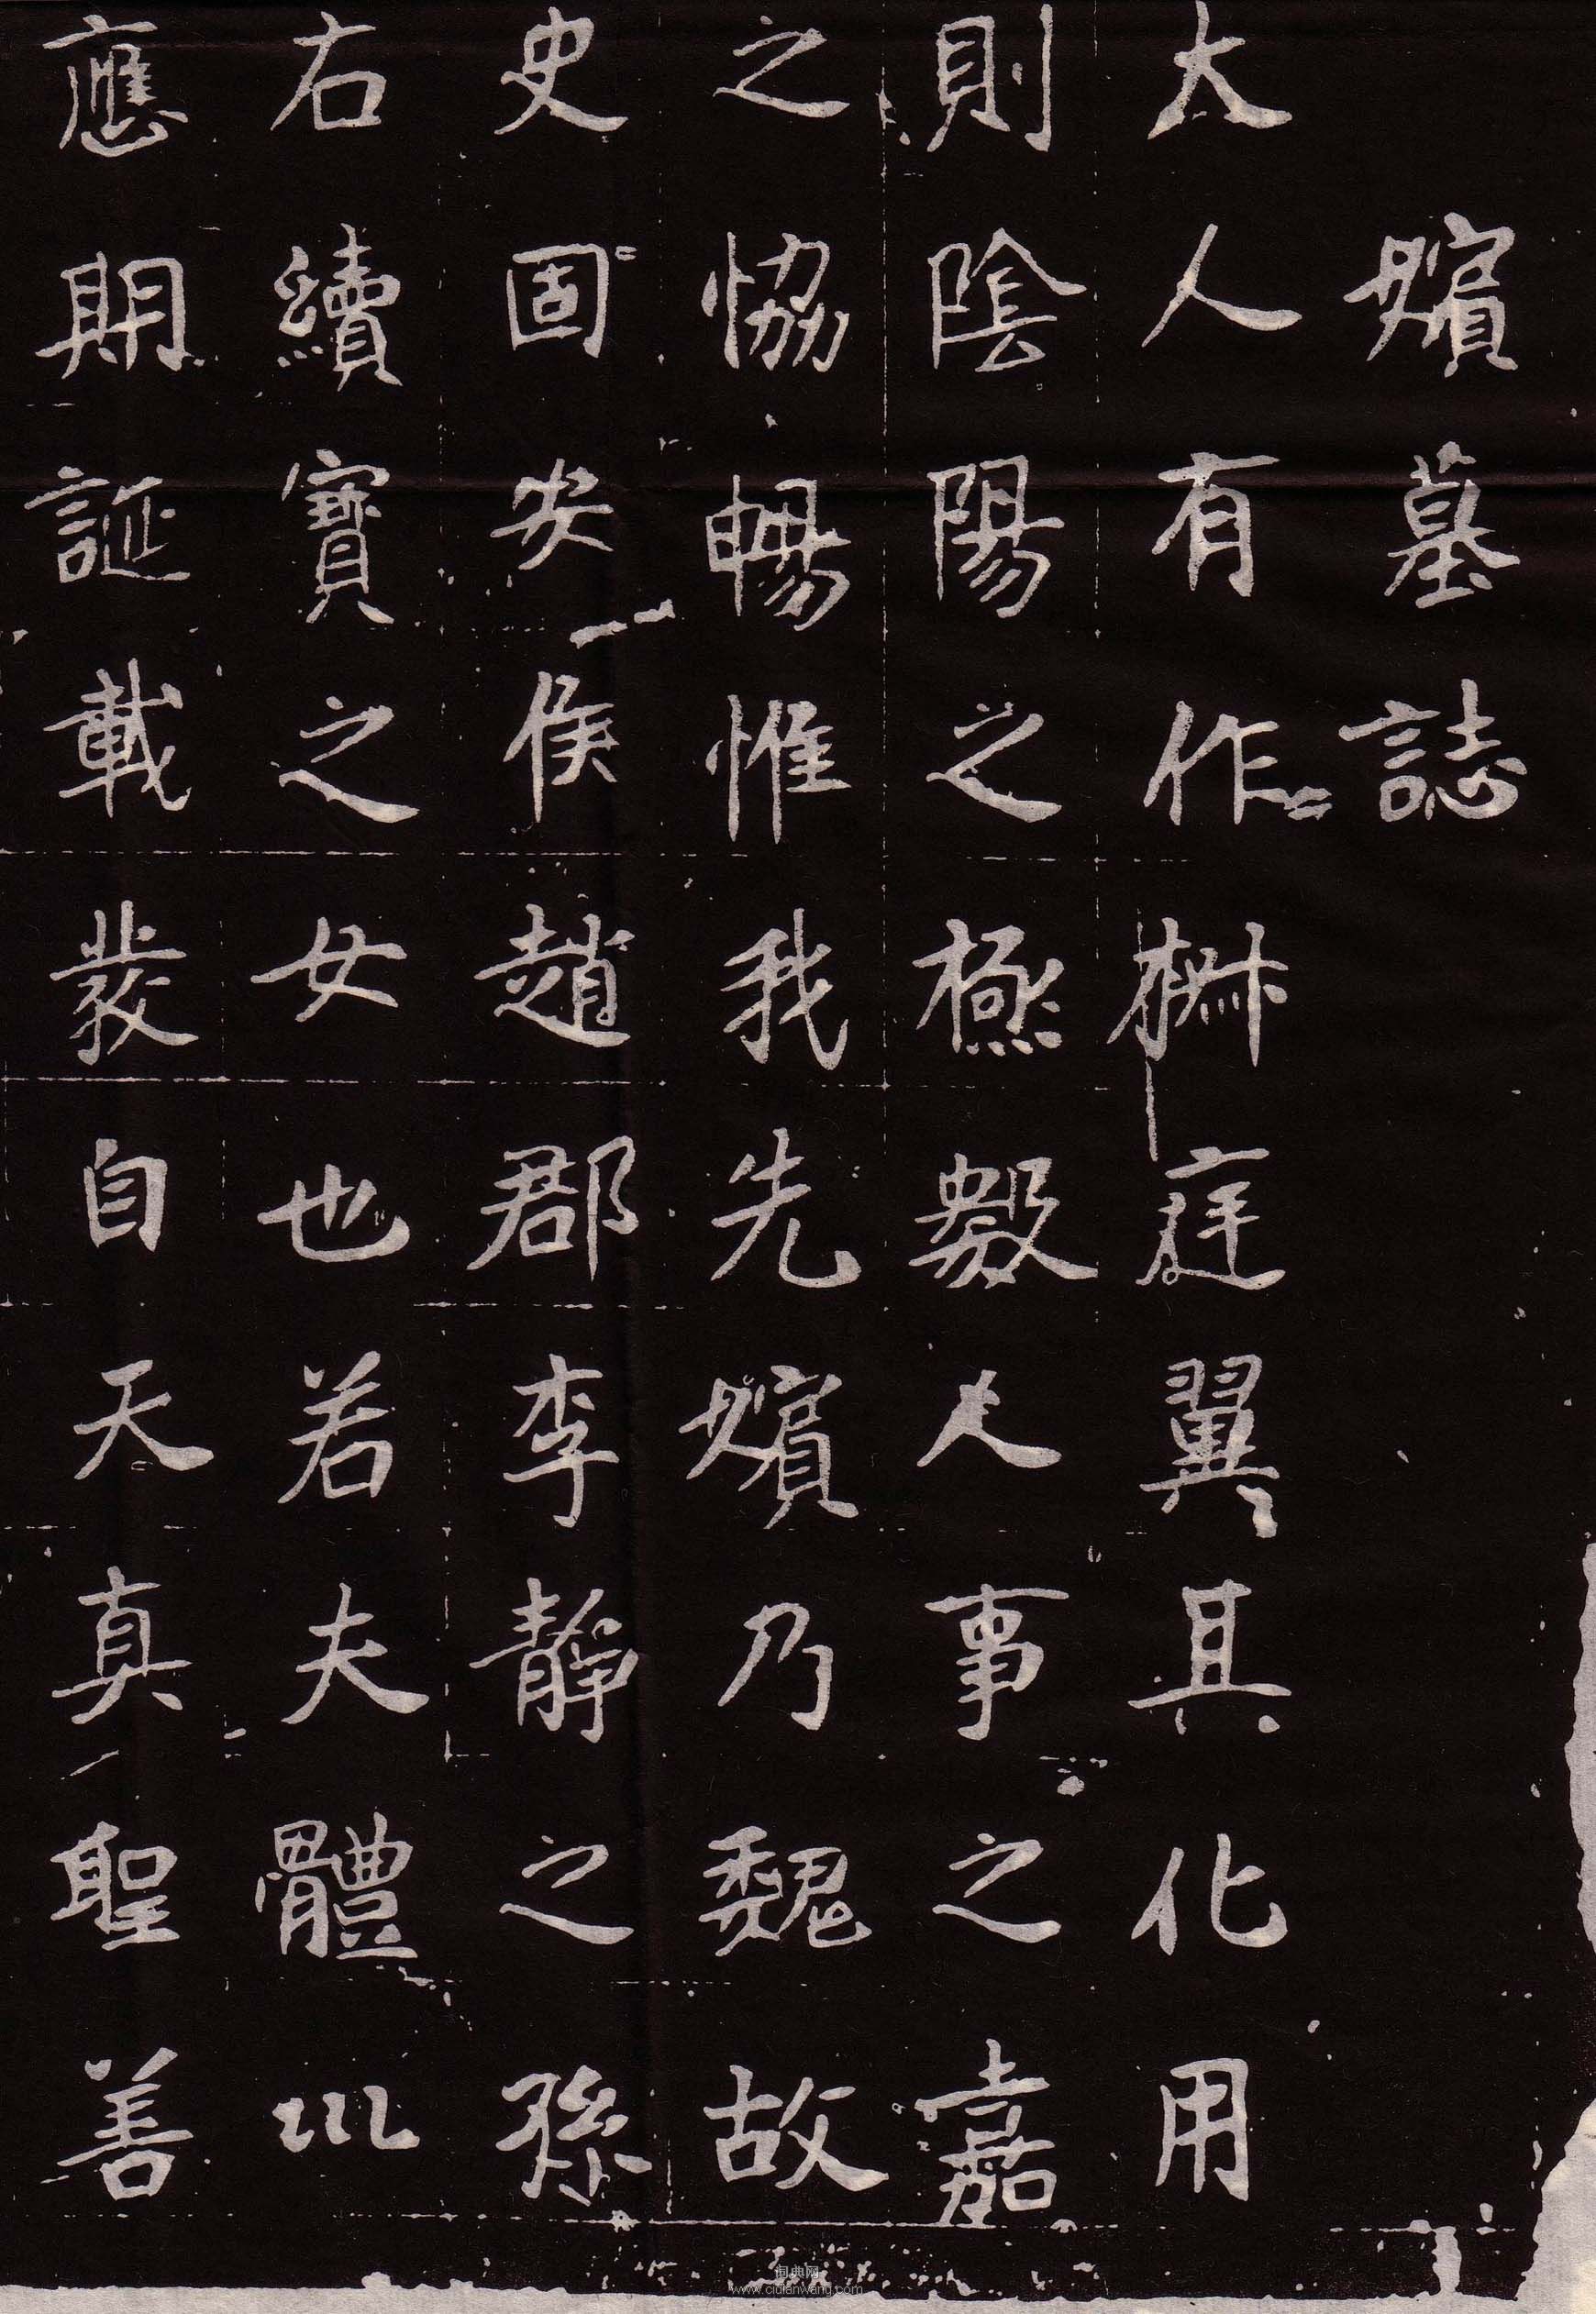 嬪墓誌
大人有作椒庭翼其化用
則陰陽之極數人事之嘉
之恊暢惟我先嬪乃魏故
史固安侯趙郡李靜之孫
右續寶之女也若夫體巛
應期誕載發自天真聖善
词典网
www.cidianwang.com